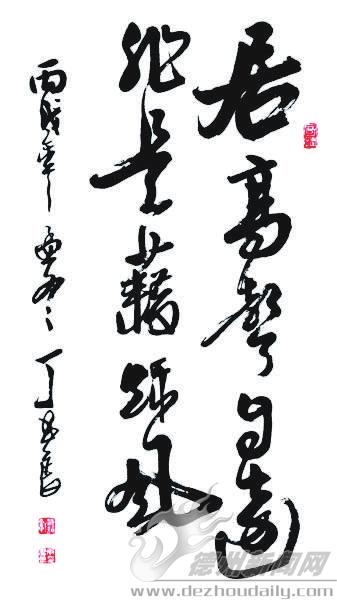 居高聲自遠
非是藉秋風
丙戌年孟冬丁
德州新闻网
www.dezhoudaily.com